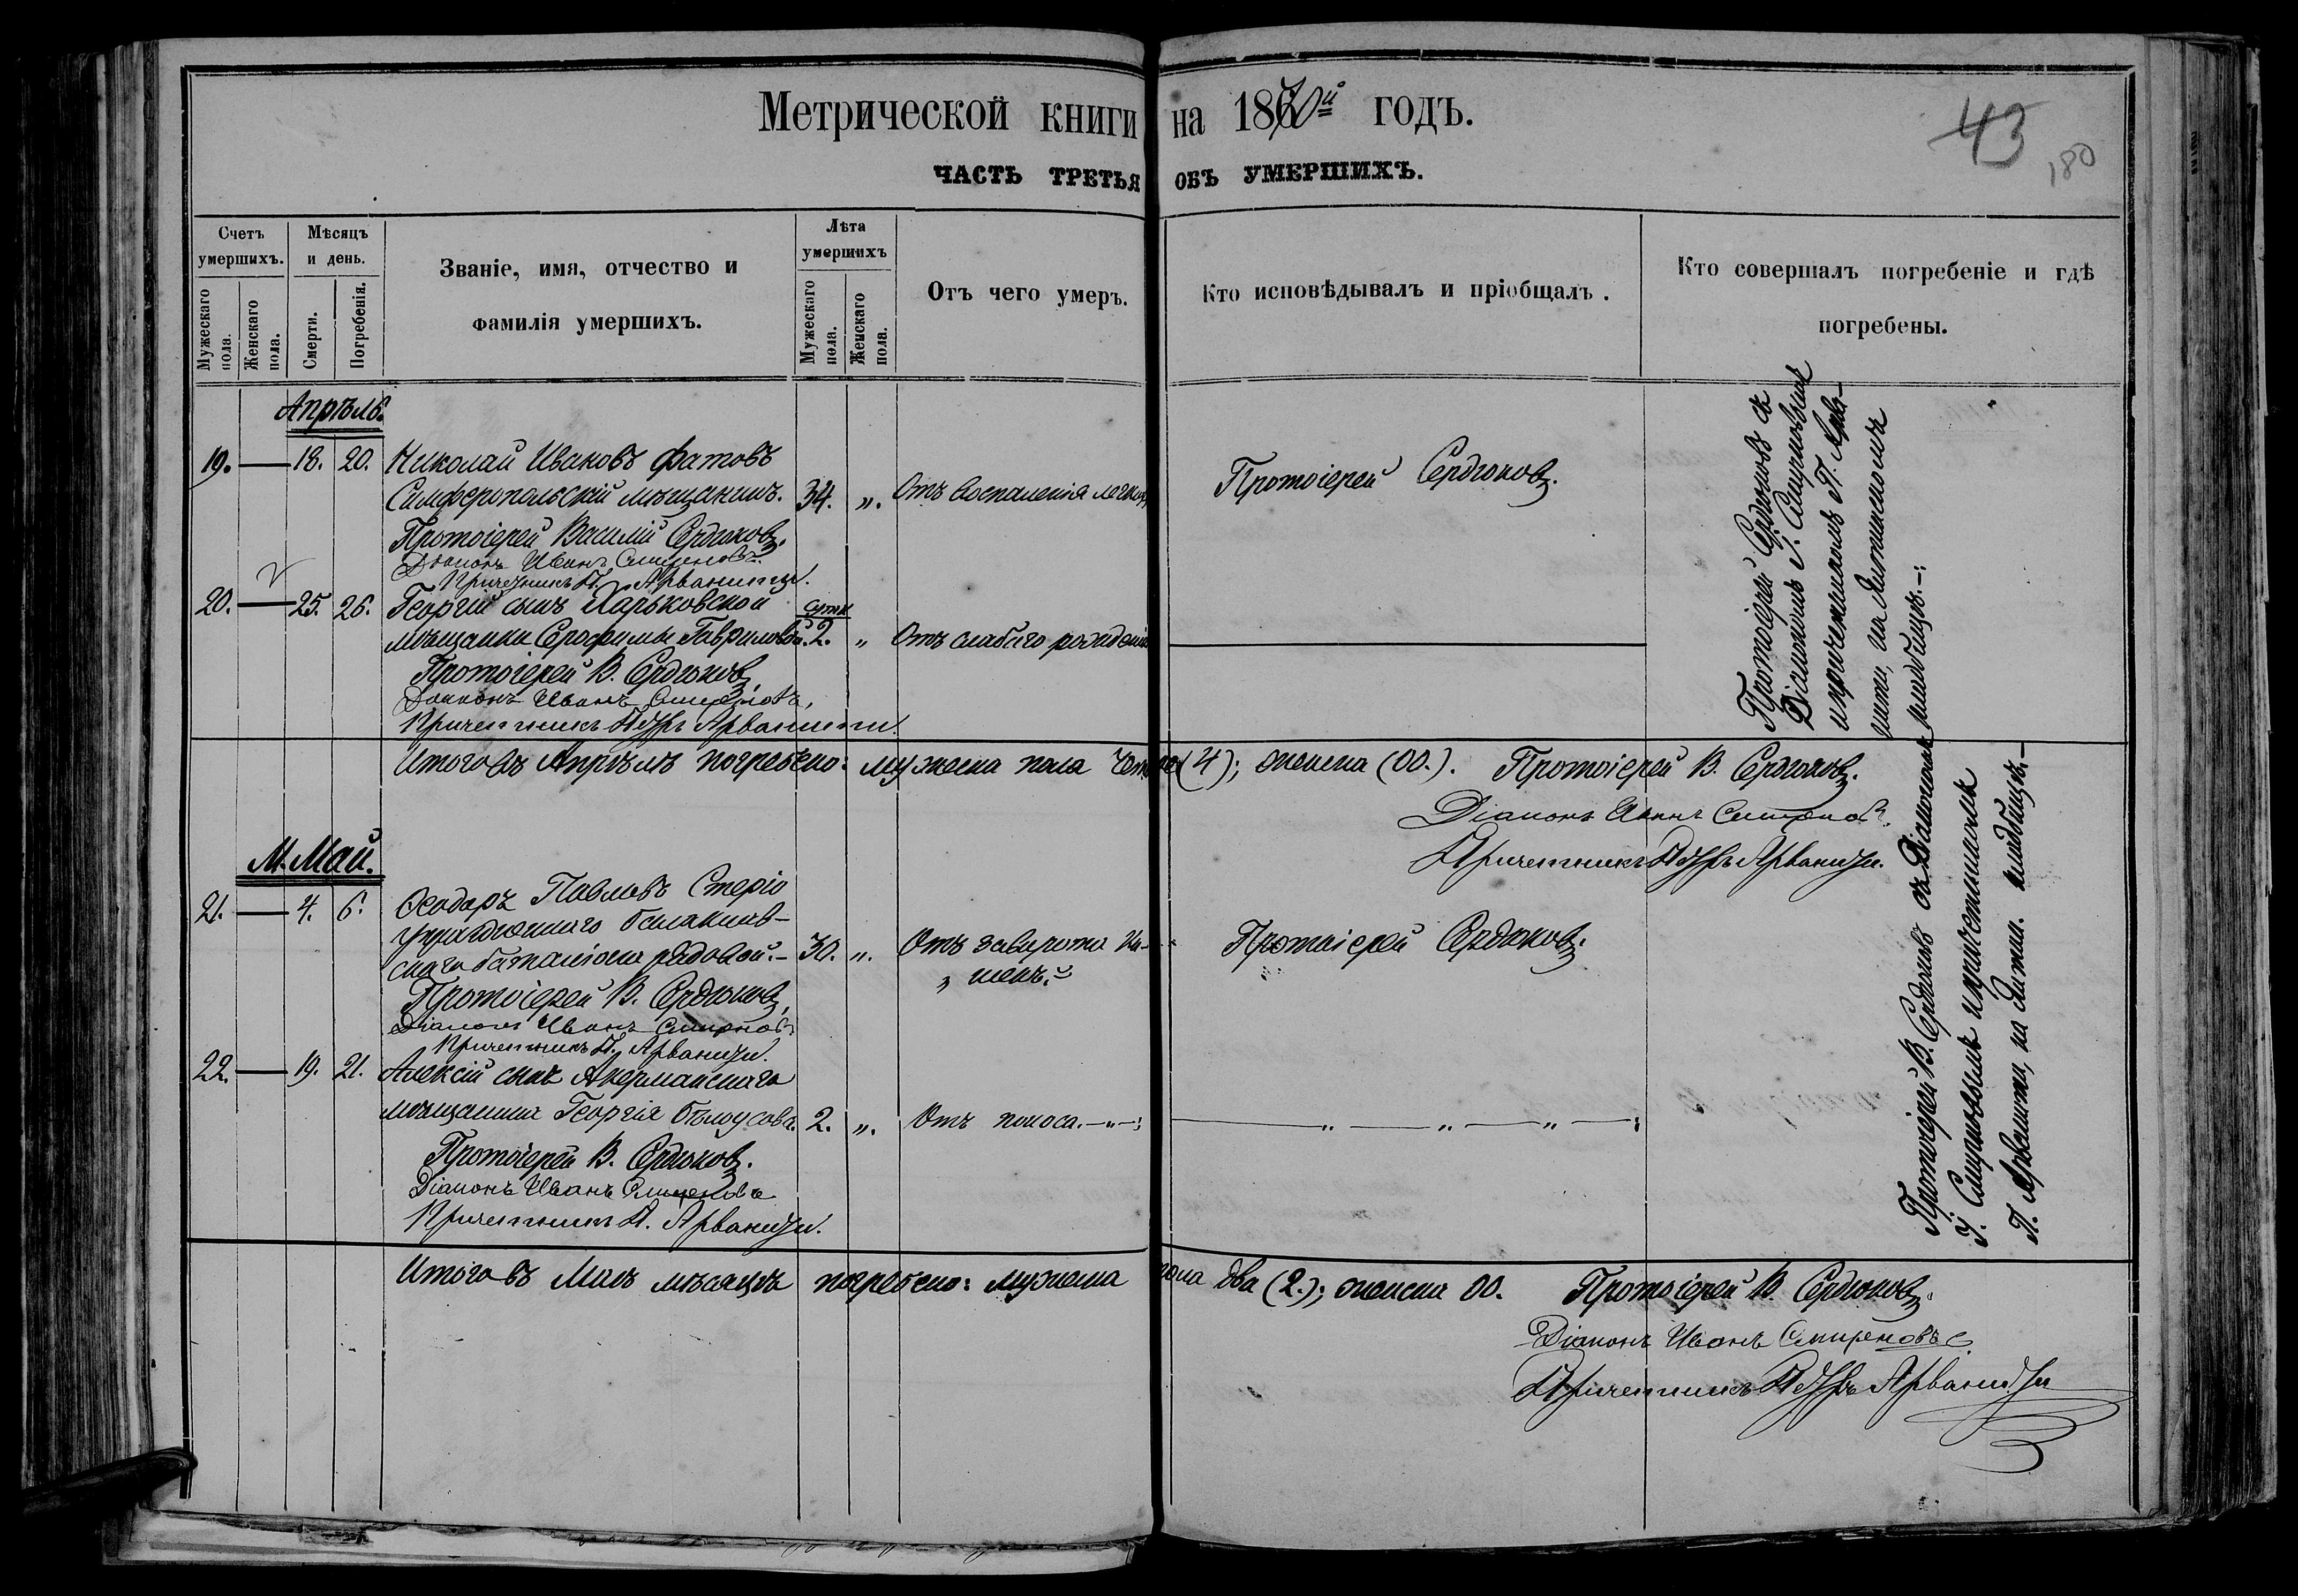 Метрической книги на 1870й годъ.
43
180
ЧАСТЬ ТРЕТЬЯ ОБЪ УМЕРШИХЪ.
Счетъ умершихъ.
Мужескаго пола.
Женскаго пола.
Мѣсяцъ и день.
Смерти.
Погребенія.
Званіе, имя, отчество и
фамилія умершихъ.
Лѣта умершихъ
Мужескаго пола.
Женскаго пола.
Отъ чего умеръ.
Кто исповѣдывалъ и пріобщалъ.
Кто совершалъ погребеніе и гдѣ
погребены.
Апрѣль.
19. — 18. 20. Николай Ивановъ Фатовъ
Симферопольскій мѣщанинъ. 34. „. Отъ воспаленія легких Протоіерей Сердюковъ.
Протоіерей Василій Сердюковъ.
Діаконъ Иванъ Смирновъ.
Причетникъ П. Арванити.
20. — 25. 26. Георгій сынъ Харьковской сутки
мѣщанки Серафимы Гавриловой. 2. „ Отъ слабаго рожденія
Протоіерей В. Сердюковъ,
Діаконъ Иванъ Смирновъ,
Причетникъ Петръ Арванити.
Протоіерей Сердюковъ съ
Діакономъ І. Смирновымъ
и причетникомъ П. Арва-
нити, на
кладбищѣ.—:
Итого въ Апрѣлѣ погребено: мужеска пола четыре (4); женска (00.). Протоіерей В. Сердюковъ.
Діаконъ Иванъ Смирновъ.
Причетникъ Петръ Арванити.
М. Май.
21. — 4. 6. Ѳеодоръ Павловъ Стеріо
упраздненнаго балаклав-
скаго баталіона рядовой.— 30. „. Отъ заворота ки- Протоіерей Сердюковъ.
шекъ.
Протоіерей В. Сердюковъ,
Діаконъ Иванъ Смирновъ
Причетникъ П. Арванити.
22. — 19. 21. Алексій сынъ Акерманскаго
мѣщанина Георгія Бѣлоусова. 2. „. Отъ поноса.—„—; — „ — „ — „ —;
Протоіерей В. Сердюковъ.
Діаконъ Иванъ Смирновъ
Причетникъ П. Арванити.
Протоіерей В. Сердюковъ съ Діакономъ
І. Смирновымъ и причетникомъ
П. Арванити, на кладбищѣ.—
Итого въ Маѣ мѣсяцѣ погребено: мужеска пола два (2.); женска 00. Протоіерей В. Сердюковъ.
Діаконъ Иванъ Смирновъ
Причетникъ Петръ Арванити